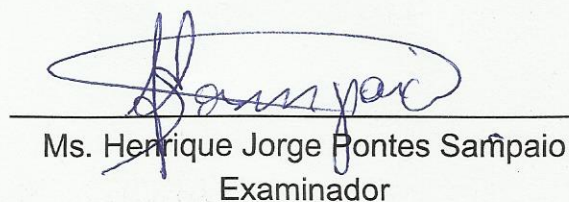 Sampaio
Ms. Henrique Jorge Pontes Sampaio
Examinador